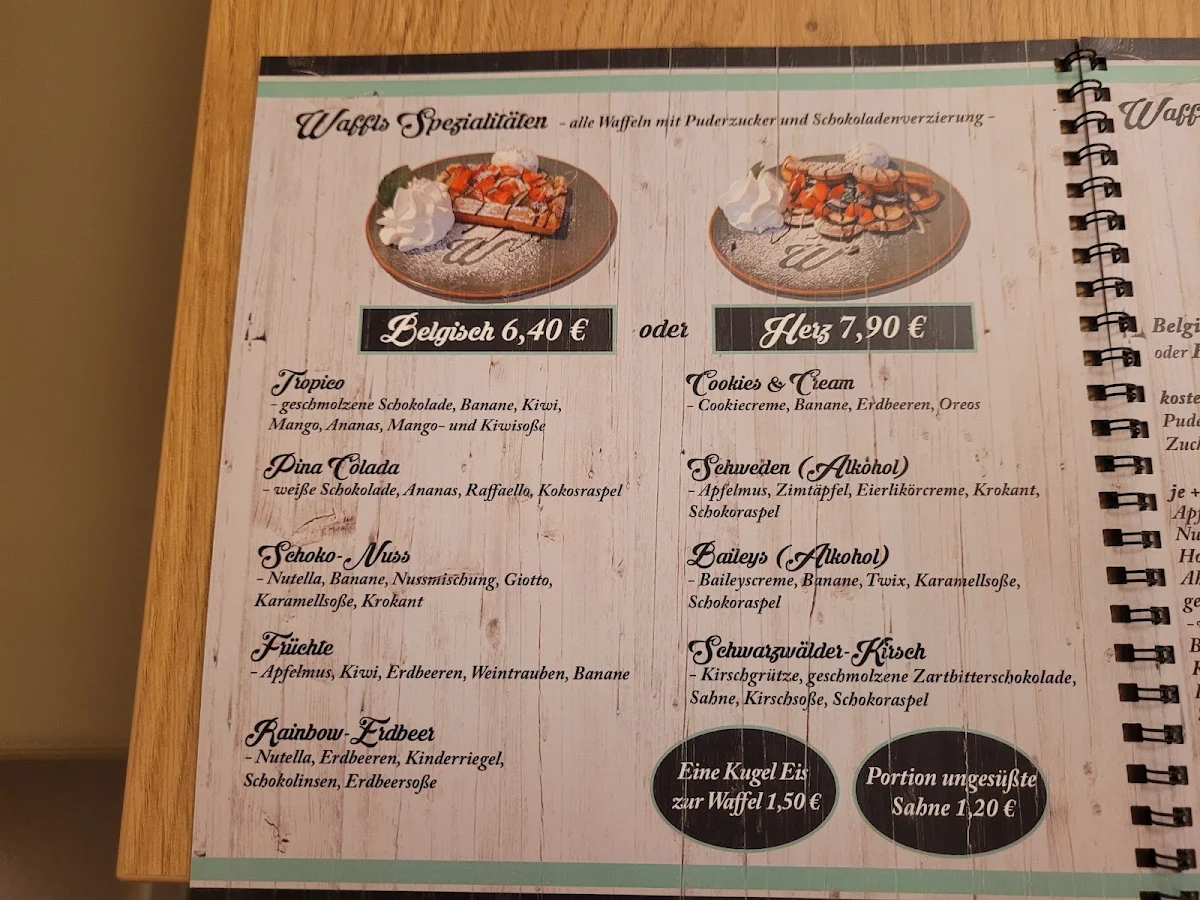 Waffls Spezialitäten - alle Waffeln mit Puderzucker und Schokoladenverzierung -
Belgisch 6,40 € oder Herz 7,90 €
Tropico
- geschmolzene Schokolade, Banane, Kiwi,
Mango, Ananas, Mango- und Kiwisoße
Pina Colada
- weiße Schokolade, Ananas, Raffaello, Kokosraspel
Schoko-Nuss
- Nutella, Banane, Nussmischung, Giotto,
Karamellsoße, Krokant
Früchte
- Apfelmus, Kiwi, Erdbeeren, Weintrauben, Banane
Rainbow-Erdbeer
- Nutella, Erdbeeren, Kinderriegel,
Schokolinsen, Erdbeersoße
Cookies & Cream
- Cookiecreme, Banane, Erdbeeren, Oreos
Schweden (Alkohol)
- Apfelmus, Zimtäpfel, Eierlikörcreme, Krokant,
Schokoraspel
Baileys (Alkohol)
- Baileyscreme, Banane, Twix, Karamellsoße,
Schokoraspel
Schwarzwälder-Kirsch
- Kirschgrütze, geschmolzene Zartbitterschokolade,
Sahne, Kirschsoße, Schokoraspel
Eine Kugel Eis
zur Waffel 1,50 €
Portion ungesüßte
Sahne 1,20 €
Waff
Belgi
oder
koste
Pude
Zuc
je +
Apf
Nu
Ho